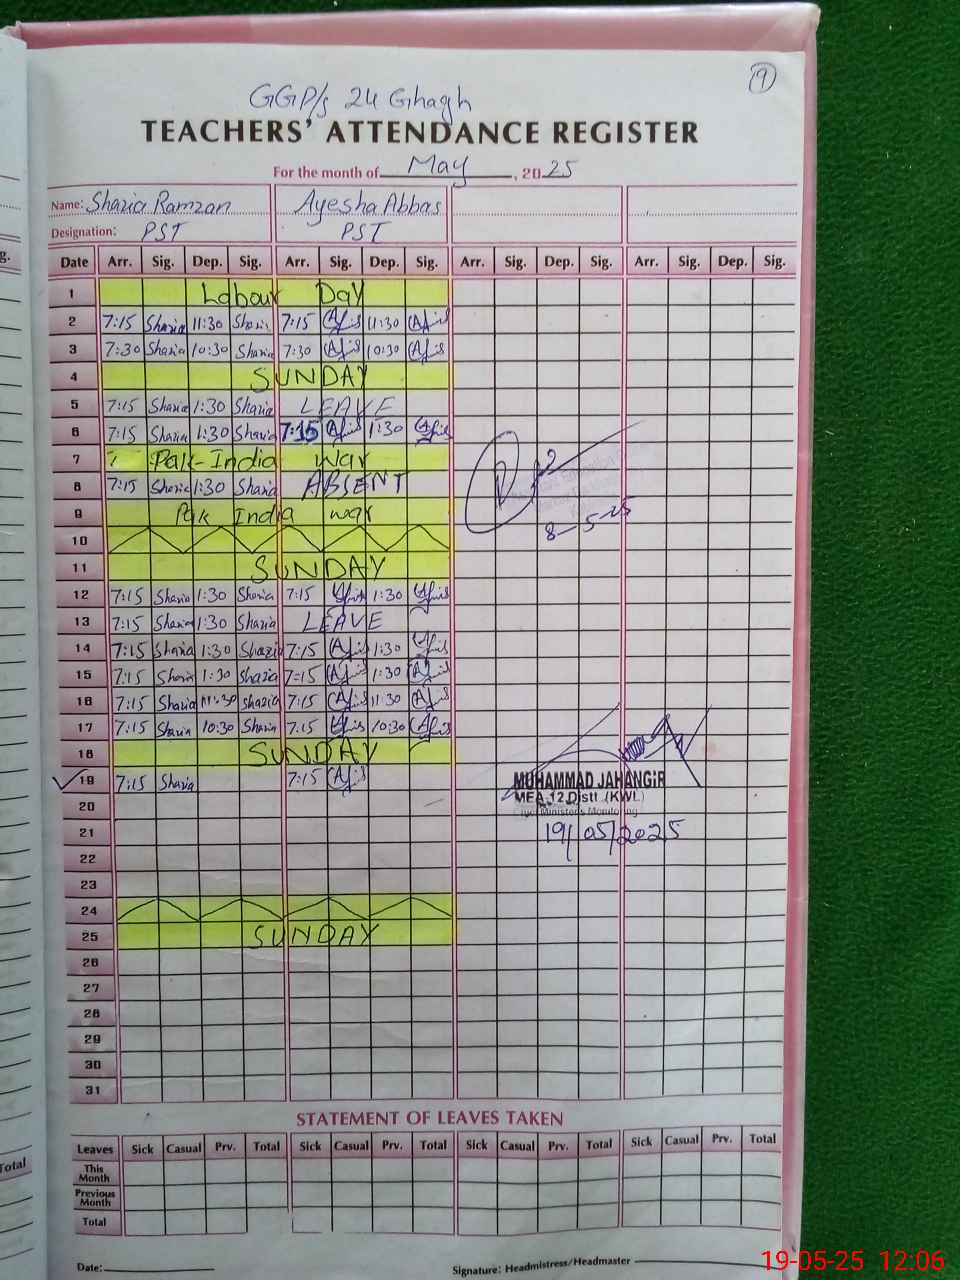 9
GGP/s 24 Ghagh
TEACHERS' ATTENDANCE REGISTER
For the month of May, 2025
Name: Shazia Ramzan Ayesha Abbas
Designation: PST PST
Date Arr. Sig. Dep. Sig. Arr. Sig. Dep. Sig. Arr. Sig. Dep. Sig. Arr. Sig. Dep. Sig.
1 Labour Day
2 7:15 Shazia 11:30 Shazia 7:15 11:30
3 7:30 Shazia 10:30 Shazia 7:30 10:30
4 SUNDAY
5 7:15 Shazia 1:30 Shazia LEAVE
6 7:15 Shazia 1:30 Shazia 7:15 1:30
7 Pak-India war
8 7:15 Shazia 1:30 Shazia ABSENT
8-5-25
9 Pak India war
10
11 SUNDAY
12 7:15 Shazia 1:30 Shazia 7:15 1:30
13 7:15 Shazia 1:30 Shazia LEAVE
14 7:15 Shazia 1:30 Shazia 7:15 1:30
15 7:15 Shazia 1:30 Shazia 7:15 1:30
16 7:15 Shazia 11:30 Shazia 7:15 11:30
17 7:15 Shazia 10:30 Shazia 7:15 10:30
18 SUNDAY
19 7:15 Shazia 7:15
MUHAMMAD JAHANGIR
MEA 12 Distt (KWL)
Minister's Monitoring
19/05/2025
20
21
22
23
24
25 SUNDAY
26
27
28
29
30
31
STATEMENT OF LEAVES TAKEN
Leaves Sick Casual Prv. Total Sick Casual Prv. Total Sick Casual Prv. Total Sick Casual Prv. Total
This Month
Previous Month
Total
Date: Signature: Headmistress/Headmaster
19-05-25 12:06